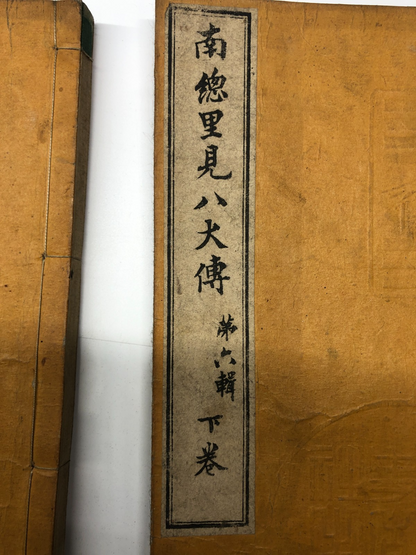 南總里見八犬傳
第六輯
下卷